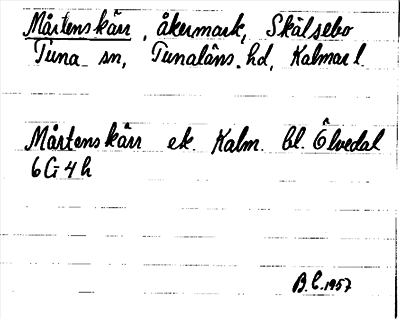 Mårtenskärr, åkermark, Skälsebo
Tuna sn, Tunaläns hd, Kalmar l.
Mårtenskärr ek. Kalm. bl. Ölvedal
6G4h
B.C. 1957